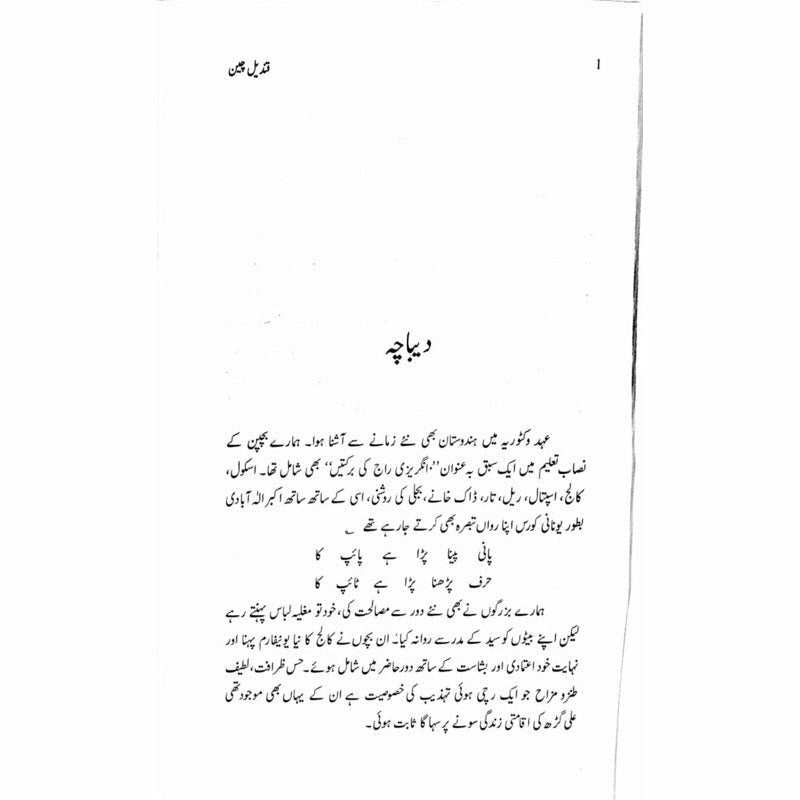 1
قندیل چین
دیباچہ
عہد وکٹوریہ میں ہندوستان بھی نئے زمانے سے آشنا ہوا۔ ہمارے بچپن کے
نصاب تعلیم میں ایک سبق بہ عنوان ’’انگریزی راج کی برکتیں‘‘ بھی شامل تھا۔ اسکول،
کالج، اسپتال، ریل، تار، ڈاک خانے، بجلی کی روشنی، اسی کے ساتھ ساتھ اکبر الہ آبادی
بطور یونانی کورس اپنا رواں تبصرہ بھی کرتے جارہے تھے ؎
پانی پینا پڑا ہے پائپ کا
حرف پڑھنا پڑا ہے ٹائپ کا
ہمارے بزرگوں نے بھی نئے دور سے مصالحت کی، خود تو مغلیہ لباس پہنتے رہے
لیکن اپنے بیٹوں کو سید کے مدرسے روانہ کیا۔ ان بچوں نے کالج کا نیا یونیفارم پہنا اور
نہایت خود اعتمادی اور بشاشت کے ساتھ دور حاضر میں شامل ہوئے۔ حس ظرافت، لطیف
طنز و مزاح جو ایک رچی ہوئی تہذیب کی خصوصیت ہے ان کے یہاں بھی موجود تھی
علی گڑھ کی اقامتی زندگی سونے پر سہاگا ثابت ہوئی۔